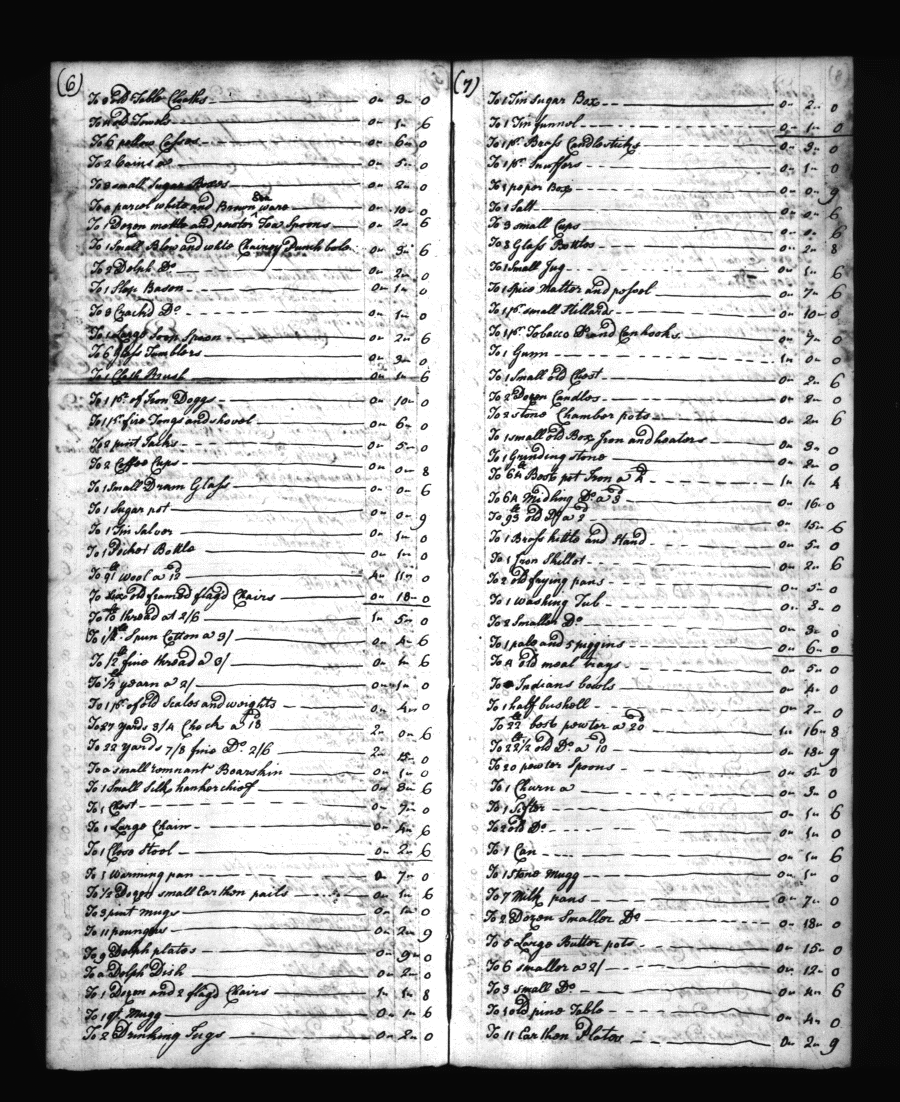 (6)
To 3 old Table Cloaths 0 3 0
To 4 old Towels 0 1 6
To 6 pillow Cases 0 6 0
To 2 0 5 0
To 3 small Sugar Boxes 0 2 0
To a parcel white and Brown ware 0 10 0
To 1 Dozen mettle and pewter Tea Spoons 0 2 6
To 1 Small Blew and white Chainey Punch bole 0 3 6
To 2 Delph Do 0 2 0
To 1 Slop Bason 0 1 0
To 3 Crackd Do 0 1 0
To 1 Large Soop Spoon 0 2 6
To 6 Glass Tumblers 0 3 0
To 1 Cloth Brush 0 1 6
To 1 pr. of Iron Doggs 0 10 0
To 1 pr. fire Tongs and shovel 0 6 0
To 2 pint Jacks 0 5 0
To 2 Coffee Cups 0 0 8
To 1 Small Dram Glass 0 0 6
To 1 Sugar pot 0 0 9
To 1 Tin Salver 0 1 0
To 1 Pocket Bottle 0 1 0
To 91 lb wool a 12d 4 11 0
To Six old framed flagd Chairs 0 18 0
To 10 lb thread at 2/6 1 5 0
To 1 1/2 lb Spun Cotton a 3/ 0 4 6
To 1/2 lb fine thread a 3/ 0 1 6
To 1/2 lb yearn a 2/ 0 1 0
To 1 pr. of old Scales and weights 0 4 0
To 27 yards 3/4 Check a 18d 2 0 6
To 22 yards 7/8 fine Do. 2/6 2 15 0
To a small remnant Bearskin 0 1 0
To 1 Small Silk hankerchief 0 3 6
To 1 Chest 0 7 0
To 1 Large Chair 0 4 6
To 1 Close Stool 0 2 6
To 1 Warming pan 0 7 0
To 1/2 Dozen small Earthen pails 0 1 6
To 3 pint mugs 0 1 0
To 11 poringers 0 2 9
To 9 Delph plates 0 9 0
To a Delph Dish 0 2 0
To 1 Dozen and 2 flagd Chairs 1 1 8
To 1 qt. Mugg 0 1 6
To 2 Drinking Jugs 0 2 0
(7)
To 1 Tin Sugar Box 0 2 0
To 1 Tin funnel 0 1 0
To 1 pr. Brass Candlesticks 0 3 0
To 1 pr. Snuffers 0 1 0
To 1 peper Box 0 0 9
To 1 Salt 0 0 6
To 3 small Cups 0 0 6
To 2 Glass Bottles 0 2 8
To 1 Small Jug 0 1 6
To 1 Spice Matter and pessel 0 7 6
To 1 pr. small Stillards 0 10 0
To 1 pr. Tobacco Do. and Canhooks 0 7 0
To 1 Gunn 1 0 0
To 1 Small old Chest 0 2 6
To 2 Dozen Candles 0 2 0
To 2 stone Chamber pots 0 2 6
To 1 small old Box Iron and heators 0 3 0
To 1 Grinding stone 0 2 0
To 64 lb Best pot Iron a 4d 1 1 4
To 64 Midling Do. a 3d 0 16 0
To 93 lb old Do. a 2d 0 15 6
To 1 Brass kettle and Stand 0 5 0
To 1 Iron Skillet 0 2 6
To 2 old frying pans 0 5 0
To 1 Washing Tub 0 3 0
To 2 Smaller Do 0 3 0
To 1 pale and 5 piggins 0 6 0
To 4 old meal trays 0 5 0
To Indians bowls 0 4 0
To 1 half bushell 0 2 0
To 22 lb best pewter a 20d 1 16 8
To 22 1/2 lb old Do. a 10d 0 18 9
To 20 pewter Spoons 0 5 0
To 1 Churn a 0 3 0
To 1 Sifter 0 1 6
To 2 old Do 0 1 0
To 1 Can 0 1 6
To 1 Stone Mugg 0 1 0
To 7 Milk pans 0 7 0
To 2 Dozen Smaller Do 0 18 0
To 5 Large Butter pots 0 15 0
To 6 smaller a 2/ 0 12 0
To 3 small Do 0 4 6
To 1 old pine Table 0 4 0
To 11 Earthen Plates 0 2 9